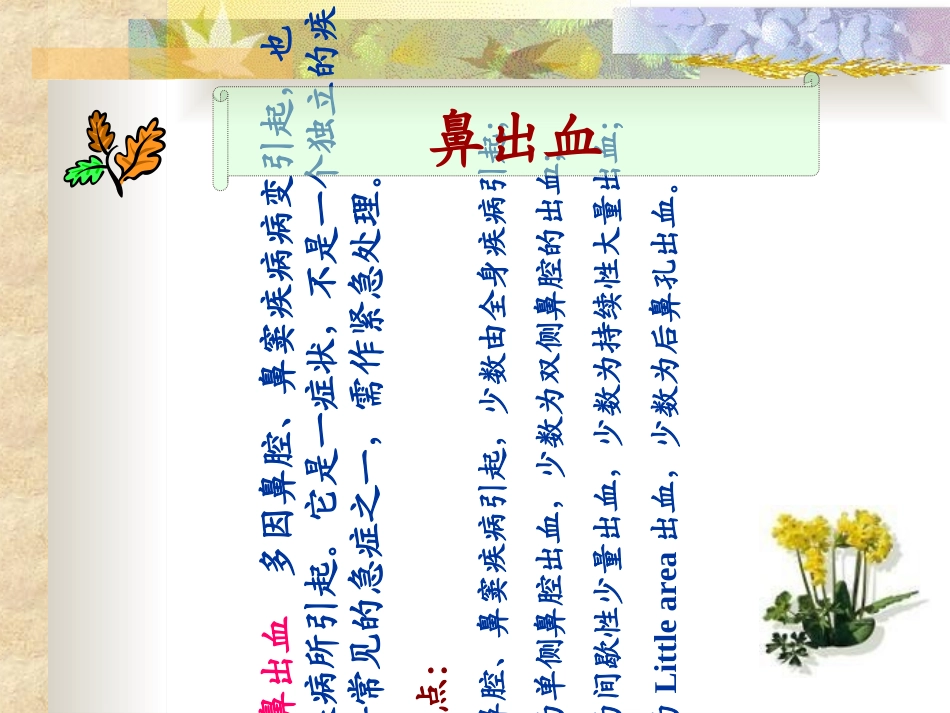 鼻出血
鼻出血 多因鼻腔、鼻窦疾病病变引起，也
病所引起。它是一症状，不是一个独立的疾
常见的急症之一，需作紧急处理。
点：
鼻腔、鼻窦疾病引起，少数由全身疾病引起；
单侧鼻腔出血，少数为双侧鼻腔的出血；
间歇性少量出血，少数为持续性大量出血；
Little area 出血，少数为后鼻孔出血。